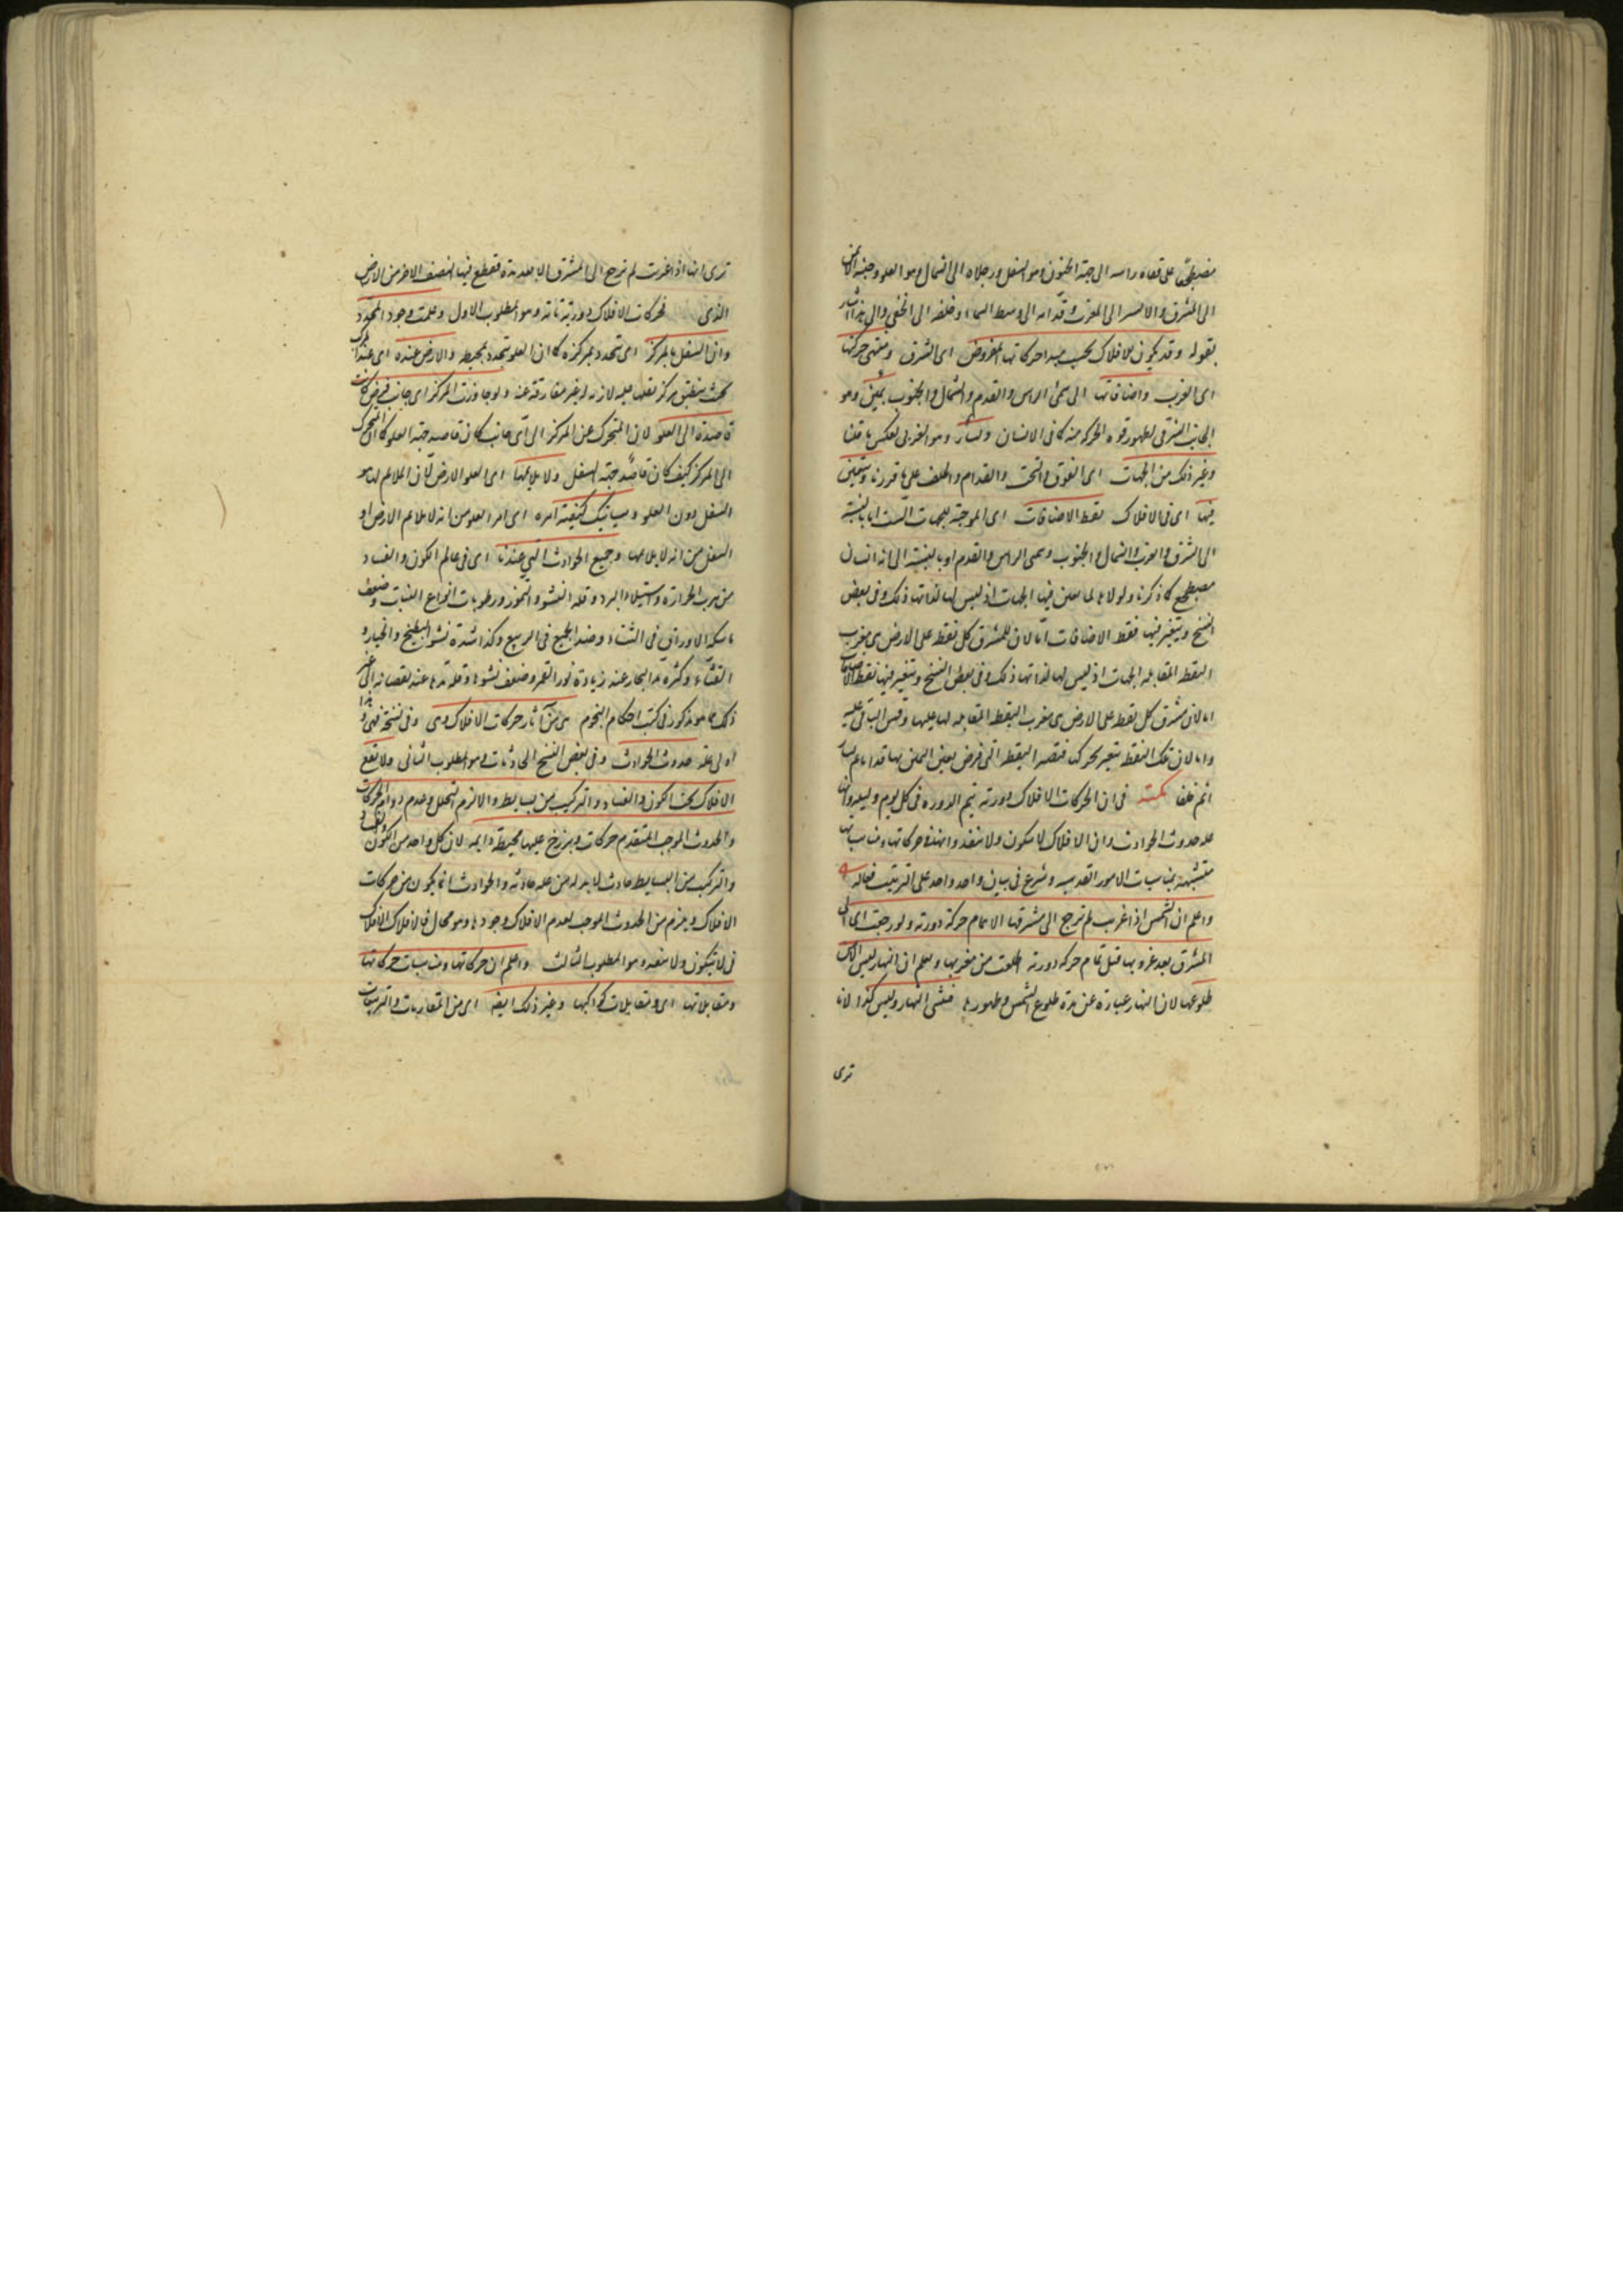 مضطجعًا على قفاه راسه الى جهة الجنوب وهو السفل ورجلاه الى الشمال وهو العلو وجنبه الايمن
الى المشرق والايسر الى المغرب وقدامه الى وسط السماء وخلفه الى الخفي والى هذا اشار
بقوله وقد يكون للافلاك بحسب مبدا حركاتها المفروض اى الشرق ومنتهى حركتها
اى الغرب واضافاتها الى سمتى الراس والقدم والشمال والجنوب يمين وهو
الجانب الشرقى لظهور قوة الحركة منه كما فى الانسان ويسار وهو الغربى بعكس ما قلنا
وغير ذلك من الجهات اى الفوق والتحت والقدام والخلف على ما قررنا ويتعين
فيها اى فى الافلاك نقط الاضافات اى الموجبة للجهات الست اما بالنسبة
الى المشرق والمغرب والشمال والجنوب وسمتى الراس والقدم او بالنسبة الى انه انسان
مضطجع كما ذكرنا ولولاها لما تعين فيها الجهات اذ ليس لها لذاتها ذلك وفى بعض
النسخ ويتغير فيها نقط الاضافات اما لان المشرق كل نقطة على الارض هى مغرب
النقطة المقابلة الجهات اذ ليس لها لذاتها ذلك وفى بعض النسخ ويتغير فيها نقط الاضافات
اما لان مشرق كل نقطة على الارض هى مغرب النقطة المقابلة لها عليها وقس الباقى عليه
واما لان تلك النقط تتغير بحركتها فتصير النقطة التى فرض تعين اليمين بها قداما ثم يسار
اثم خلفا نكتة فى ان الحركات الافلاك دورية تتم الدورة فى كل يوم وليلة وانها
علة حدوث الحوادث وان الافلاك لا تتكون ولا تفسد وان هذه حركاتها ومناسباتها
متشبهة بمناسبات الامور القدسية وشرع فى بيان واحد واحد على الترتيب فقال
واعلم ان الشمس اذا غربت لم ترجع الى مشرقها الا بتمام حركة دورية ولو رجعت اى الى
المشرق بعد غروبها قبل تمام حركة دورية طلعت من مغربها ويعلم ان النهار ليس الا
طلوعها لان النهار عبارة عن مدة طلوع الشمس وظهورها فيثنى النهار وليس كذا لانا
ترى
ترى انها اذا غربت لم ترجع الى المشرق الا بعد مدة فقطع فيها النصف الاخر من الارض
الذى فحركات الافلاك دورية تامة وهو المطلوب الاول وعلمت وجود المحدد
وان السفل بالمركز اى تتحدد بمركزه كما ان العلو تتحدد بمحيطه والارض عنده اى عند المركز
بحيث ينطبق مركز ثقلها عليه لازمة له غير مفارقة عنه ولو جاوزت المركز اى جانب فرض كانت
قاصدة الى العلو لان المتحرك عن المركز الى اى جانب كان قاصد جهة العلو كما ان المتحرك
الى المركز كيف كان قاصد جهة السفل ولا يلايمها اى العلو الارض لان الملايم لها هو
السفل دون العلو وسياتيك كيفية امره اى امر العلو من انه لا يلايم الارض او
السفل من انه لا يلايمها وجميع الحوادث التى عندنا اى فى عالم الكون والفساد
من هرب الحرارة واستيلاء البرد وقلة النشو والنمو ورطوبات انواع النبات وضعف
ماسكة الاوراق فى الشتاء وضد الجميع فى الربيع وكذا شدة نشو البطيخ والخيار و
القثاء وكثرة مد البحار عند زيادة نور القمر وضعف نشوها وقلة مدها عند نقصانه الى غير
ذلك مما هو مذكور فى كتب احكام النجوم هى من آثار حركات الافلاك وهى وفى نسخة فهى و هذا
اولى علة حدوث الحوادث وفى بعض النسخ الحادثات وهو المطلوب الثانى ولا يقع
الافلاك تحت الكون والفساد والتركيب من بسايط والا لزم التحلل وعدم دوام الحركات
والحدوث الموجب لتقدم حركات وبرزخ عليها محيطة دايمة لان كل واحد من الكون والفساد
والتركيب من البسايط حادث لابد له من علة حادثة والحوادث انما تكون من حركات
الافلاك ويلزم من الحدوث الموجب لعدم الافلاك وجودها وهو محال فالافلاك الافلاك
فى لا يتكون ولا تفسد وهو المطلوب الثالث واعلم ان حركاتها ومناسبات حركاتها
ومقابلاتها اى ومقابلات كواكبها وغير ذلك ايضا اى من المقارنات والتربيعات